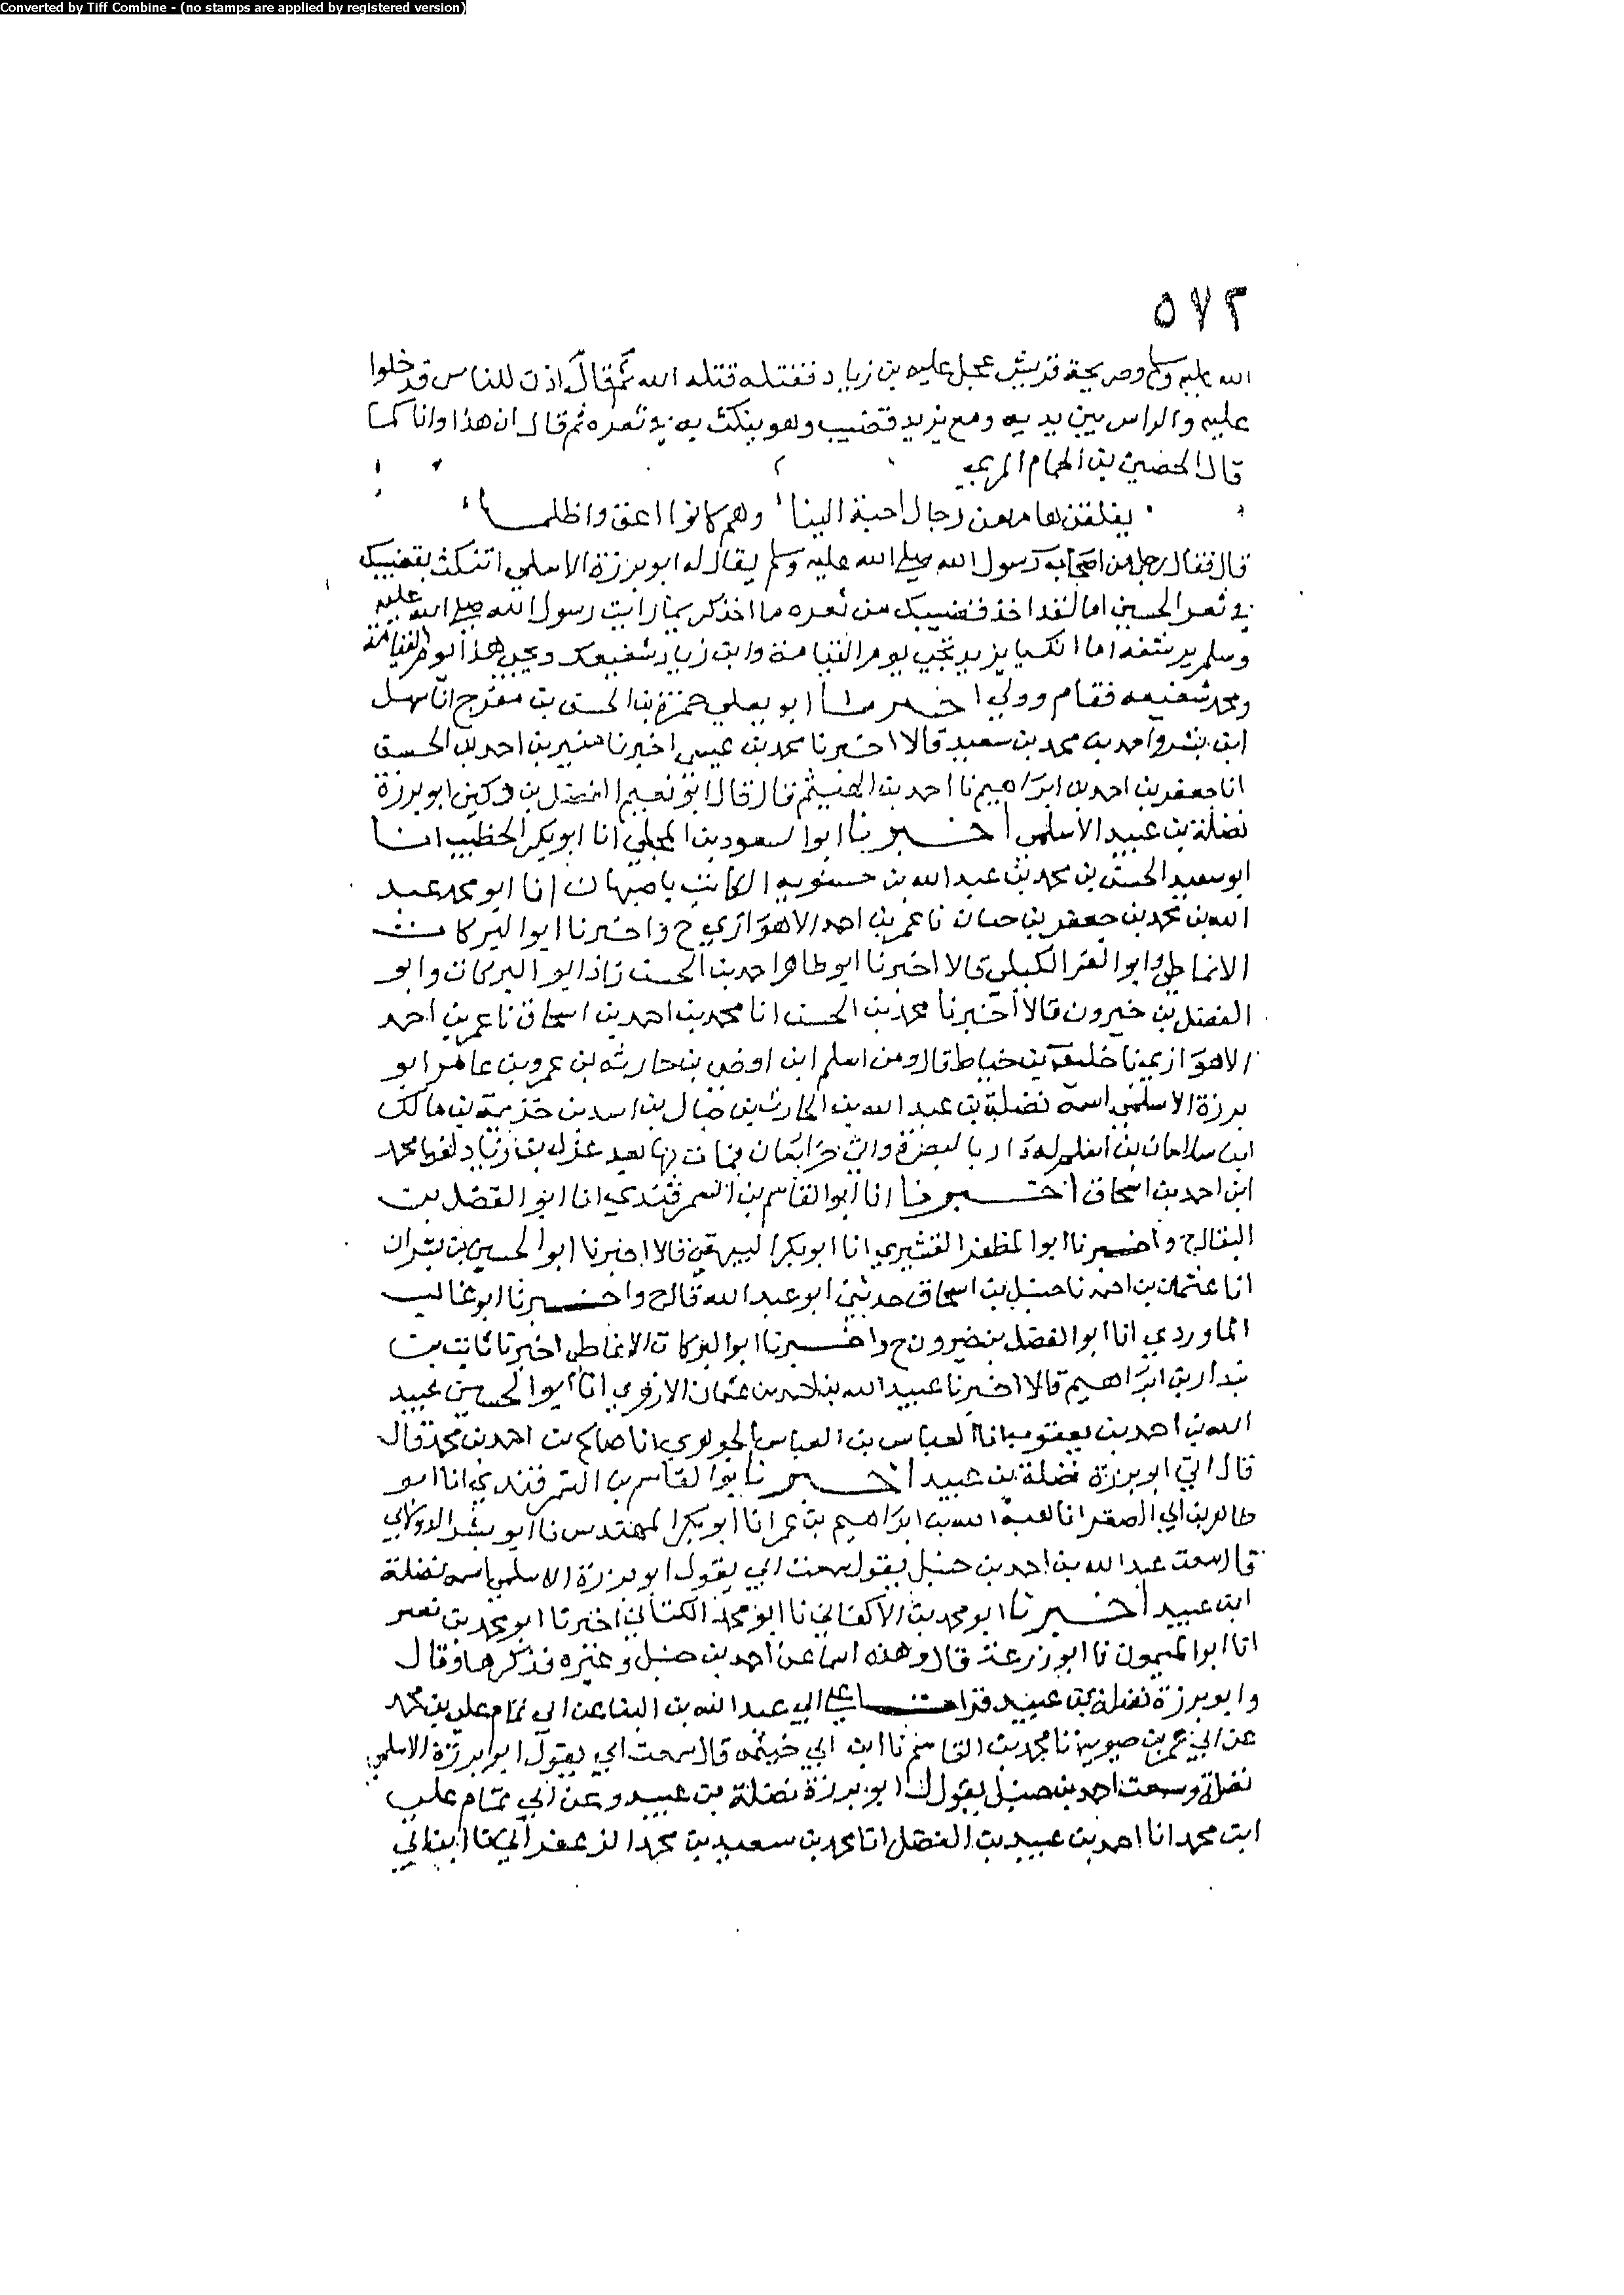 Converted by Tiff Combine - (no stamps are applied by registered version)
٥٧٢
الله عليه وسلم وصريحة قريش عجل عليه بن زياد فقتله قتله الله ثم قال اذن للناس فدخلوا
عليه والراس بين يديه ومع يزيد قضيب وهو ينكث به في ثغره ثم قال ان هذا وانا كما
قال الحصين بن الحمام المري
يفلقن هاما من رجال احبة الينا وهم كانوا اعق واظلما
قال فقال رجل من اصحاب رسول الله صلى الله عليه وسلم يقال له ابو برزة الاسلمي اتنكث بقضيبك
في ثغر الحسين اما لقد اخذ قضيبك من ثغره ماخذ لربما رايت رسول الله صلى الله عليه
وسلم يرشفه اما انك يا يزيد تجي يوم القيامة وابن زياد شفيعك ويجي هذا يوم القيامة
ومحمد شفيعه فقام وولى اخبرنا ابو يعلى حمزة بن الحسن بن مفرج انا سهل
ابن بشر واحمد بن محمد بن سعيد قالا اخبرنا محمد بن عيسى اخبرنا منير بن احمد بن الحسن
انا جعفر بن احمد بن ابراهيم نا احمد بن الهيثم قال قال ابو نعيم الفضل بن دكين ابو برزة
نضلة بن عبيد الاسلمي اخبرنا ابوا السعود بن المجلي انا ابو بكر الخطيب انا
ابو سعيد الحسن بن محمد بن عبد الله بن حسنويه الكاتب باصبهان انا ابو محمد عبد
الله بن محمد بن جعفر بن حيان نا عمر بن احمد الاهوازي ح واخبرنا ابوا البركات
الانماطي وابوا العز الكيلي قالا اخبرنا ابو طاهر احمد بن الحسن زاد ابو البركات وابو
الفضل بن خيرون قالا اخبرنا محمد بن الحسن انا محمد بن احمد بن اسحاق نا عمر بن احمد
الاهوازي نا خليفة بن خياط قال ومن اسلم ابن افصى بن حارثه بن عمرو بن عامر ابو
برزة الاسلمي اسمه نضلة بن عبد الله بن الحارث بن حبال بن اسد بن خزيمة بن مالك
ابن سلامان بن اسلم له دار بالبصرة واتى خراسان فمات بها بعد عزل بن زياد لفظ محمد
ابن احمد بن اسحاق اخبرنا انا ابوا القاسم بن السمرقندي انا ابو الفضل بن
البقال ح واخبرنا ابوا المظفر القشيري انا ابو بكر البيهقي قالا اخبرنا ابوا الحسين بن بشران
انا عثمان بن احمد نا حنبل بن اسحاق حدثني ابو عبد الله قال ح واخبرنا ابو غالب
الماوردي انا ابوا الفضل بن خيرون ح واخبرنا ابوا البركات الانماطي اخبرنا ثابت بن
بندار بن ابراهيم قالا اخبرنا عبيد الله بن احمد بن عثمان الازهري انا ابوا الحسين عبيد
الله بن احمد بن يعقوب انا العباس بن العباس الجوهري انا صالح بن احمد بن محمد قال
قال ابي ابو برزة نضلة بن عبيد اخبرنا ابوا القاسم بن السمرقندي انا ابو
طاهر بن ابي الصقر انا هبة الله بن ابراهيم بن عمر انا ابو بكر المهندس نا ابو بشر الدولابي
قال سمعت عبد الله بن احمد بن حنبل يقول سمعت ابي يقول ابو برزة الاسلمي اسمه نضلة
ابن عبيد اخبرنا ابو محمد بن الاكفاني نا ابو محمد الكتاني اخبرنا ابو محمد بن نصر
انا ابوا الميمون نا ابو زرعة قال وهذه اسما عن احمد بن حنبل وغيره فذكرها وقال
وابو برزة نضلة بن عبيد قرانا على ابي عبد الله بن البنا عن ابي تمام علي بن محمد
عن ابي عمر بن حيوية نا محمد بن القاسم نا ابن ابي خيثمه قال سمعت ابي يقول ابو برزة الاسلمي
نضلة وسمعت احمد بن حنبل يقول ابو برزة نضلة بن عبيد وعن ابي تمام علي
ابن محمد انا احمد بن عبيد بن الفضل انا محمد بن سعيد بن محمد الزعفراني نا ابن ابي